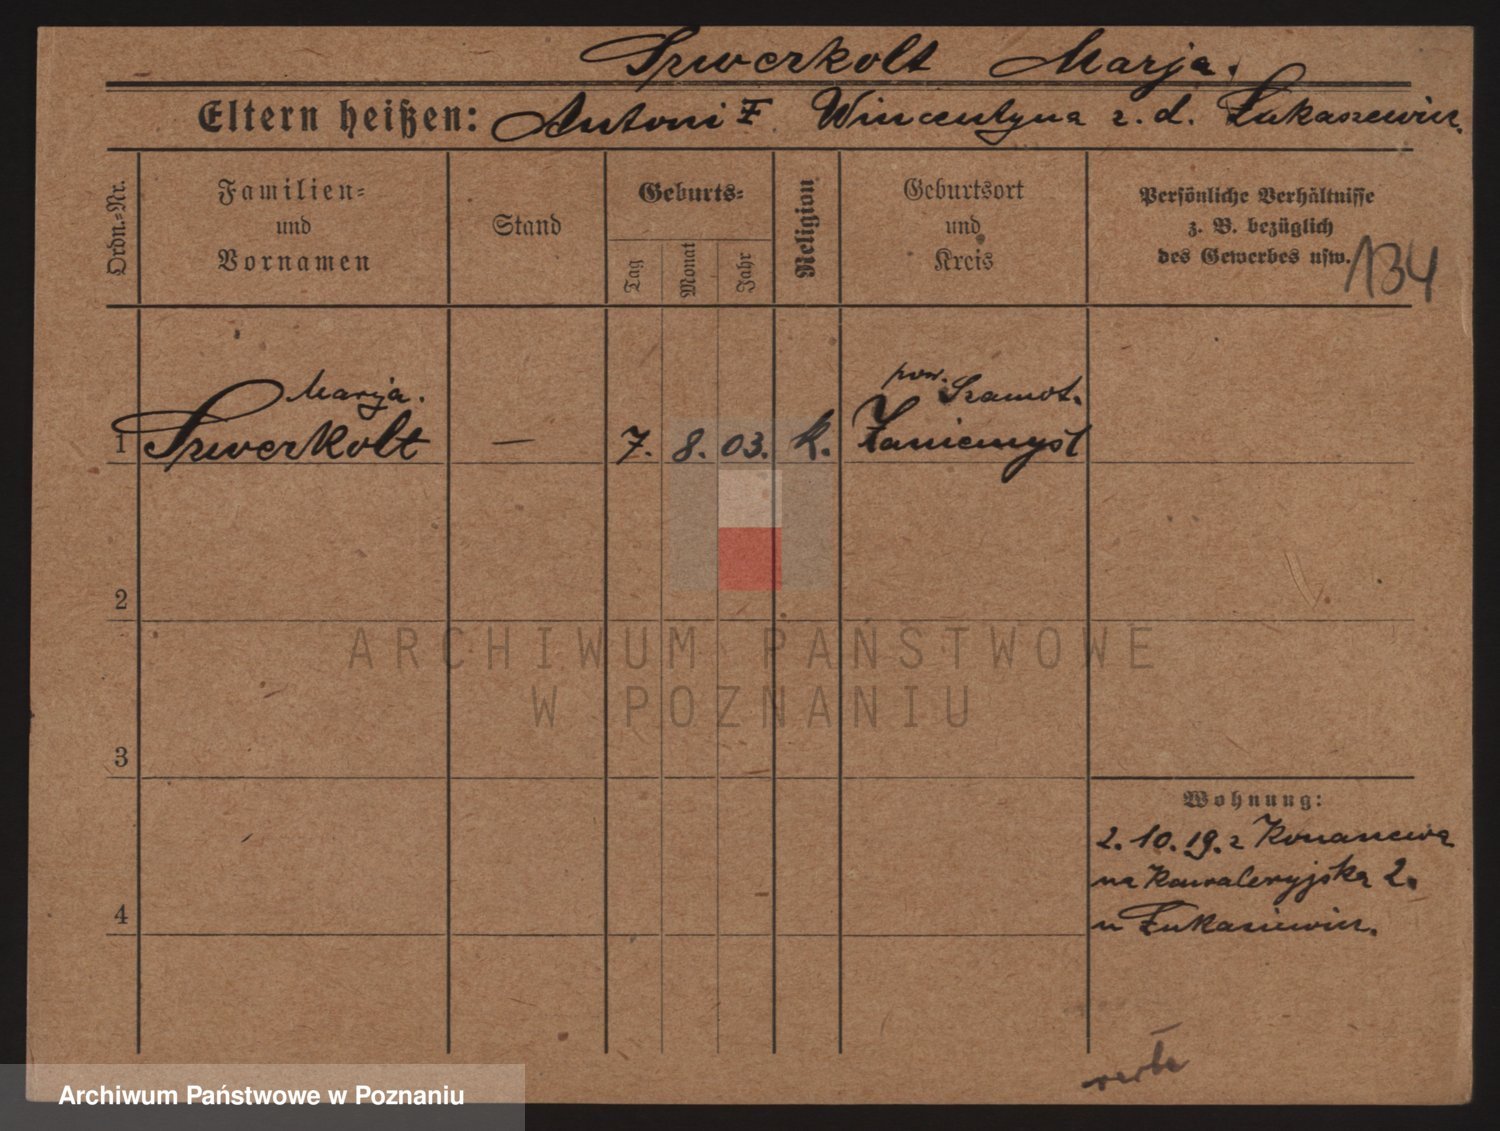 Szwerkolt Marja.
Eltern heißen: Antoni Ŧ Wincentyna z. d. Łukaszewicz.
Ordn.-Nr.
Familien-
und
Vornamen
Stand
Geburts-
Tag
Monat
Jahr
Religion
Geburtsort
und
Kreis
Persönliche Verhältnisse
z. B. bezüglich
des Gewerbes usw.
134
Marja.
1 Szwerkolt — 7. 8. 03. k.
pow. Szamot.
Zaniemyśl
2
3
4
Wohnung:
2. 10. 19. z
na Kawaleryjska 2.
u Łukasiewicz.
ARCHIWUM PAŃSTWOWE
W POZNANIU
Archiwum Państwowe w Poznaniu